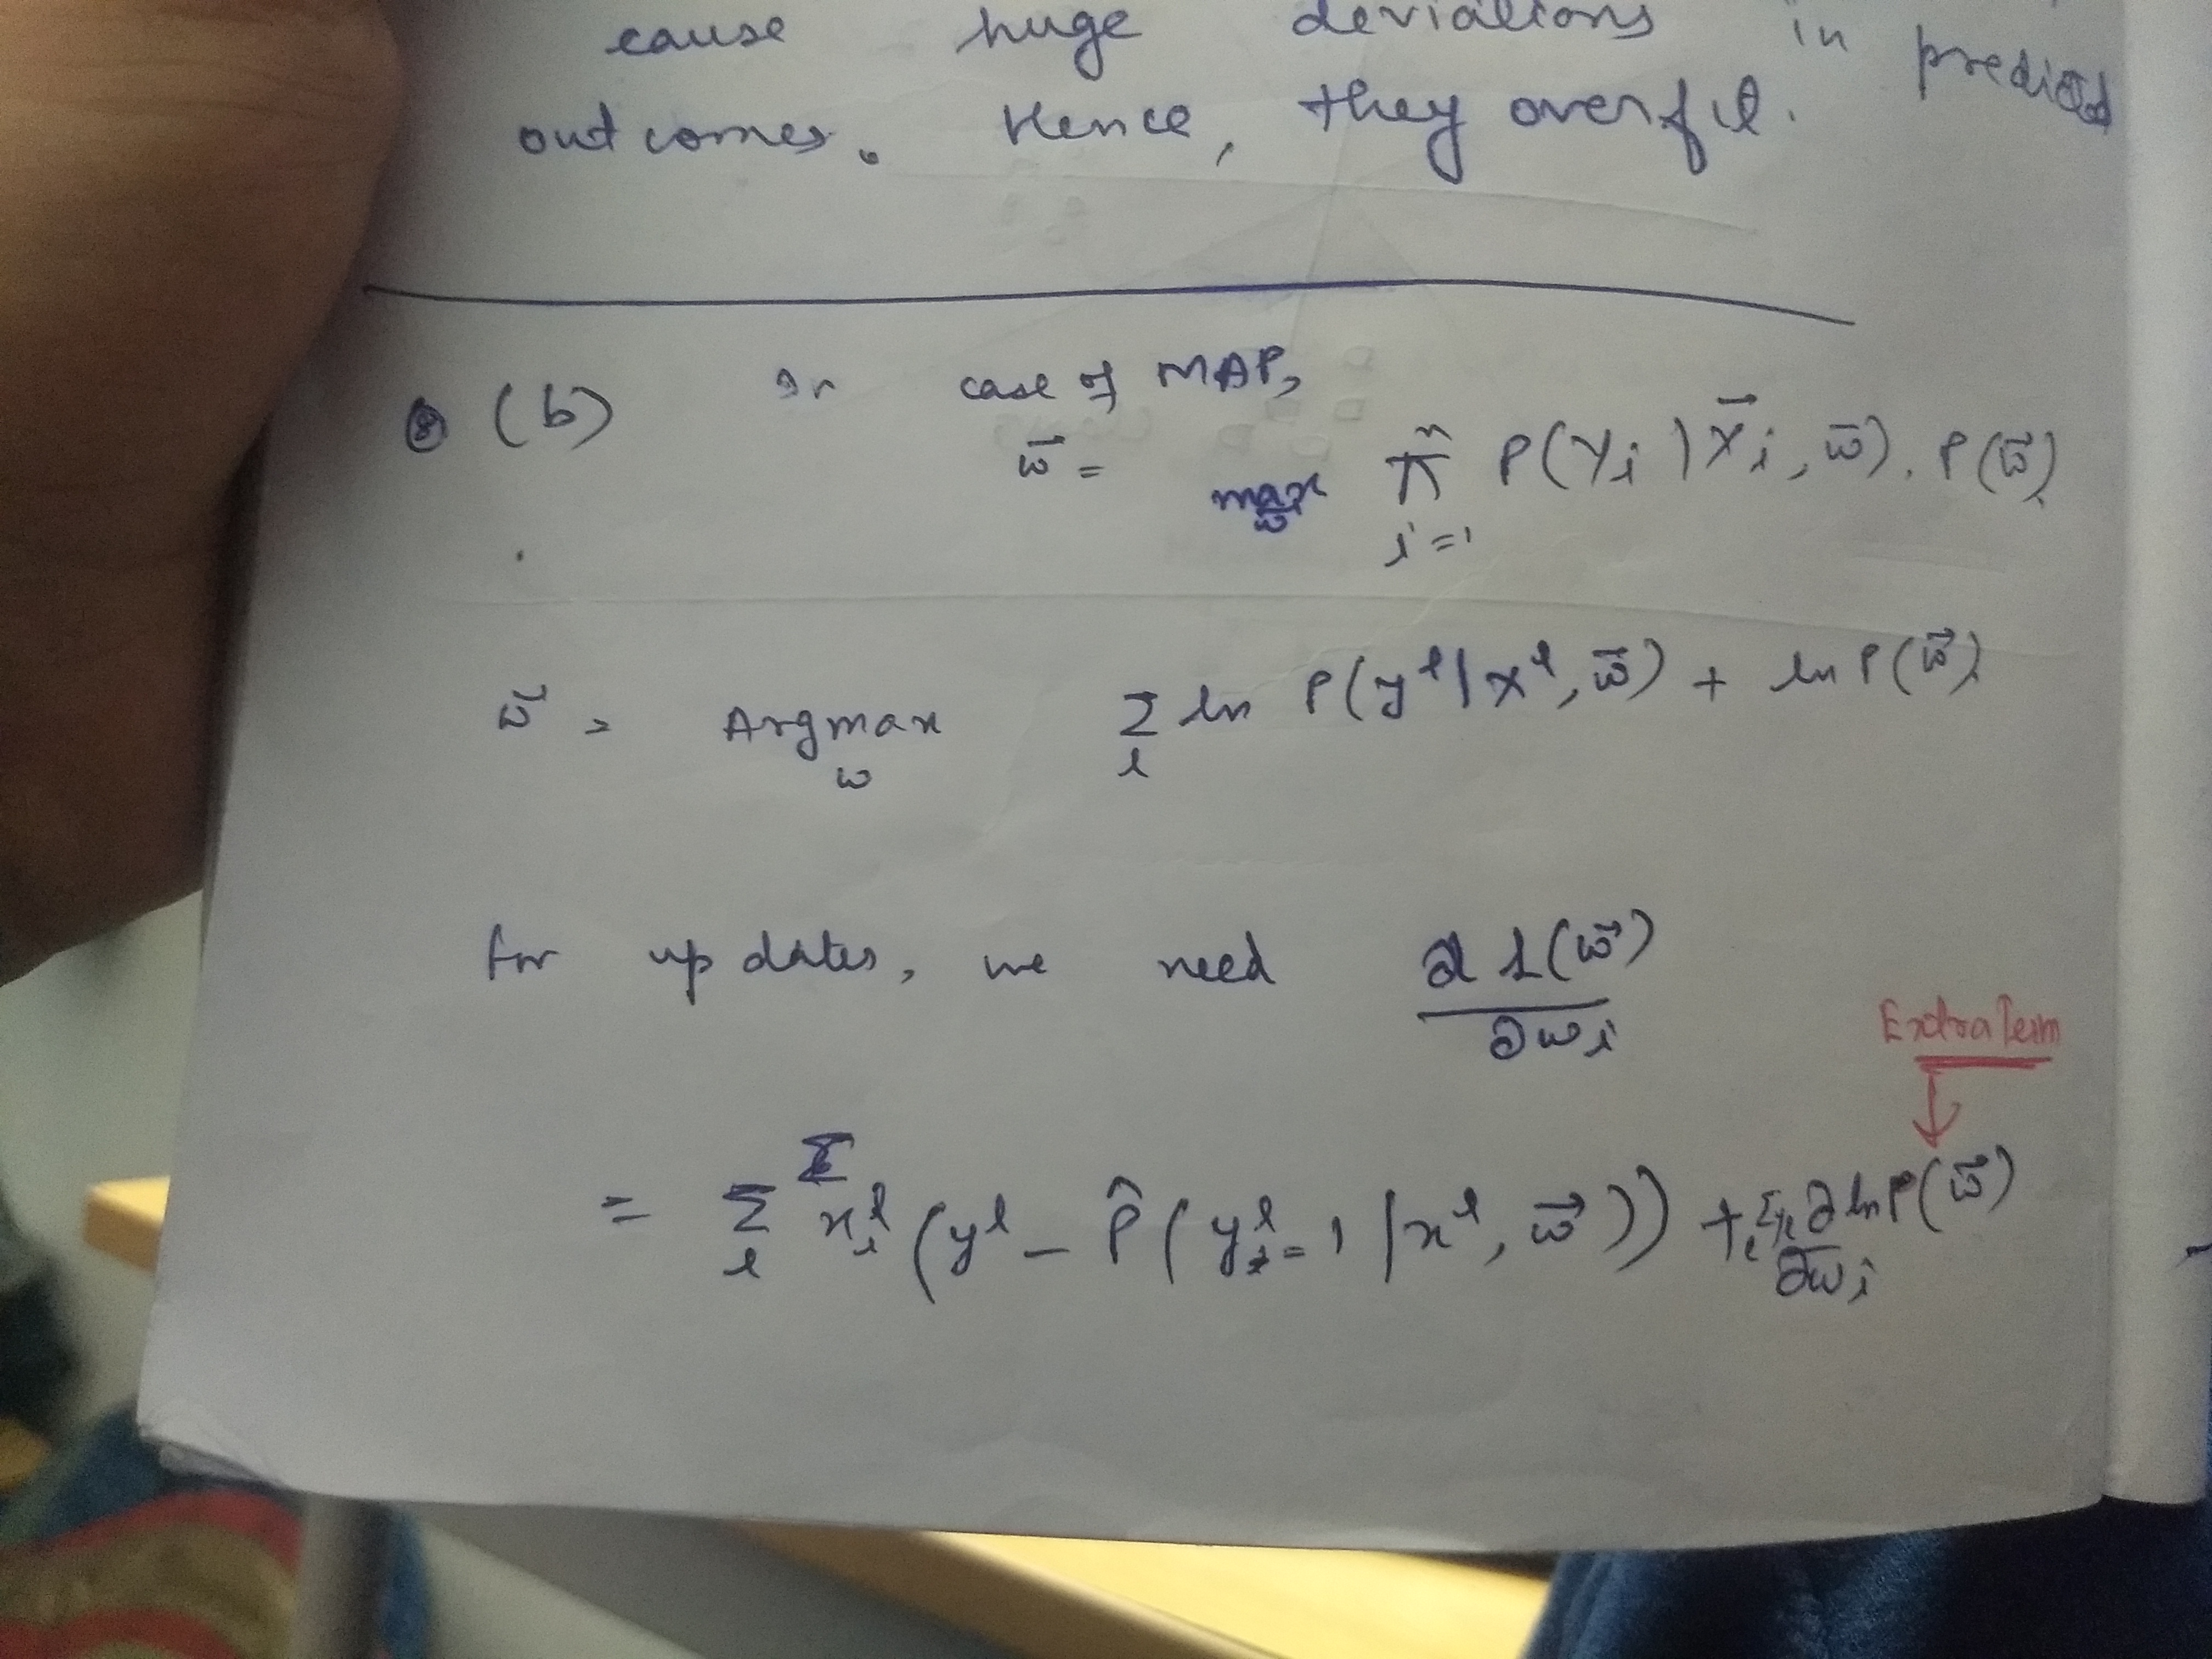 cause huge deviations in predicted
outcomes. Hence, they overfit.
(b) In case of MAP,
w⃗ = max w⃗ π^n i=1 P(Yi | X⃗i, w⃗). P(w⃗)
w⃗ = Argmax w Σ l ln P(y^l | x^l, w⃗) + ln P(w⃗)
for updates, we need ∂ L(w⃗) / ∂wi
Extra Term
↓
= Σ l xi^l (y^l − P̂ (y^l = 1 | x^l, w⃗)) + ∂ ln P(w⃗) / ∂wi